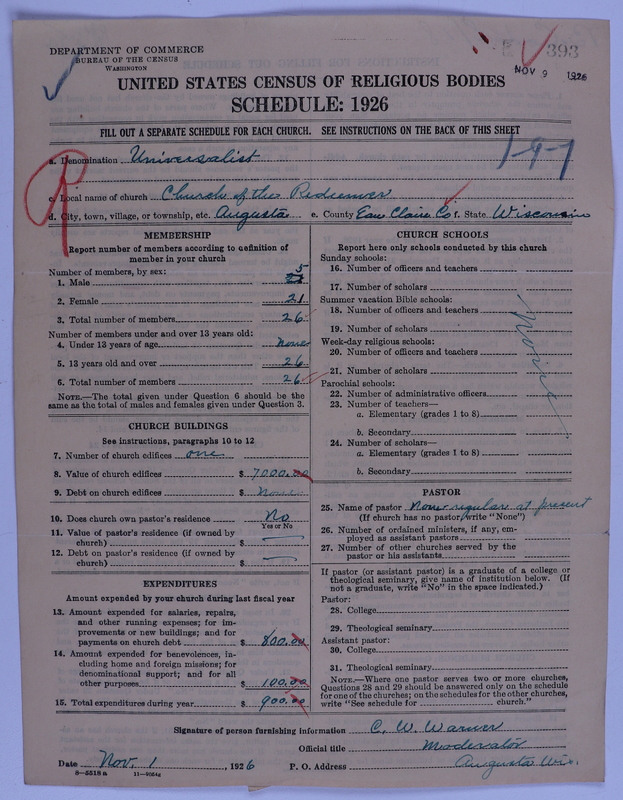 DEPARTMENT OF COMMERCE
BUREAU OF THE CENSUS
WASHINGTON
393
NOV 9 1926
UNITED STATES CENSUS OF RELIGIOUS BODIES
SCHEDULE: 1926
FILL OUT A SEPARATE SCHEDULE FOR EACH CHURCH. SEE INSTRUCTIONS ON THE BACK OF THIS SHEET
1-9-7
a. Denomination Universalist
R
c. Local name of church Church of the Redeemer
d. City, town, village, or township, etc. Augusta e. County Eau Claire Co f. State Wisconsin
MEMBERSHIP
Report number of members according to definition of
member in your church
Number of members, by sex:
1. Male 5
2. Female 21
3. Total number of members 26
Number of members under and over 13 years old:
4. Under 13 years of age None
5. 13 years old and over 26
6. Total number of members 26
NOTE.—The total given under Question 6 should be the
same as the total of males and females given under Question 3.
CHURCH BUILDINGS
See instructions, paragraphs 10 to 12
7. Number of church edifices one
8. Value of church edifices $ 7000.00
9. Debt on church edifices $ None
10. Does church own pastor's residence No
Yes or No
11. Value of pastor's residence (if owned by
church) $ —
12. Debt on pastor's residence (if owned by
church) $ —
EXPENDITURES
Amount expended by your church during last fiscal year
13. Amount expended for salaries, repairs,
and other running expenses; for im-
provements or new buildings; and for
payments on church debt $ 800.00
14. Amount expended for benevolences, in-
cluding home and foreign missions; for
denominational support; and for all
other purposes $ 100.00
15. Total expenditures during year $ 900.00
CHURCH SCHOOLS
Report here only schools conducted by this church
Sunday schools:
16. Number of officers and teachers
17. Number of scholars
Summer vacation Bible schools:
18. Number of officers and teachers
19. Number of scholars
Week-day religious schools:
20. Number of officers and teachers
21. Number of scholars
None
Parochial schools:
22. Number of administrative officers
23. Number of teachers—
a. Elementary (grades 1 to 8)
b. Secondary
24. Number of scholars—
a. Elementary (grades 1 to 8)
b. Secondary
PASTOR
25. Name of pastor None regular at present
(If church has no pastor, write "None")
26. Number of ordained ministers, if any, em-
ployed as assistant pastors
27. Number of other churches served by the
pastor or his assistants
If pastor (or assistant pastor) is a graduate of a college or
theological seminary, give name of institution below. (If
not a graduate, write "No" in the space indicated.)
Pastor:
28. College
29. Theological seminary
Assistant pastor:
30. College
31. Theological seminary
NOTE.—Where one pastor serves two or more churches,
Questions 28 and 29 should be answered only on the schedule
for one of the churches; on the schedules for the other churches,
write "See schedule for church."
Signature of person furnishing information C. W. Warner
Official title Moderator
Date Nov. 1, 1926 P. O. Address Augusta Wis.
8—5518a